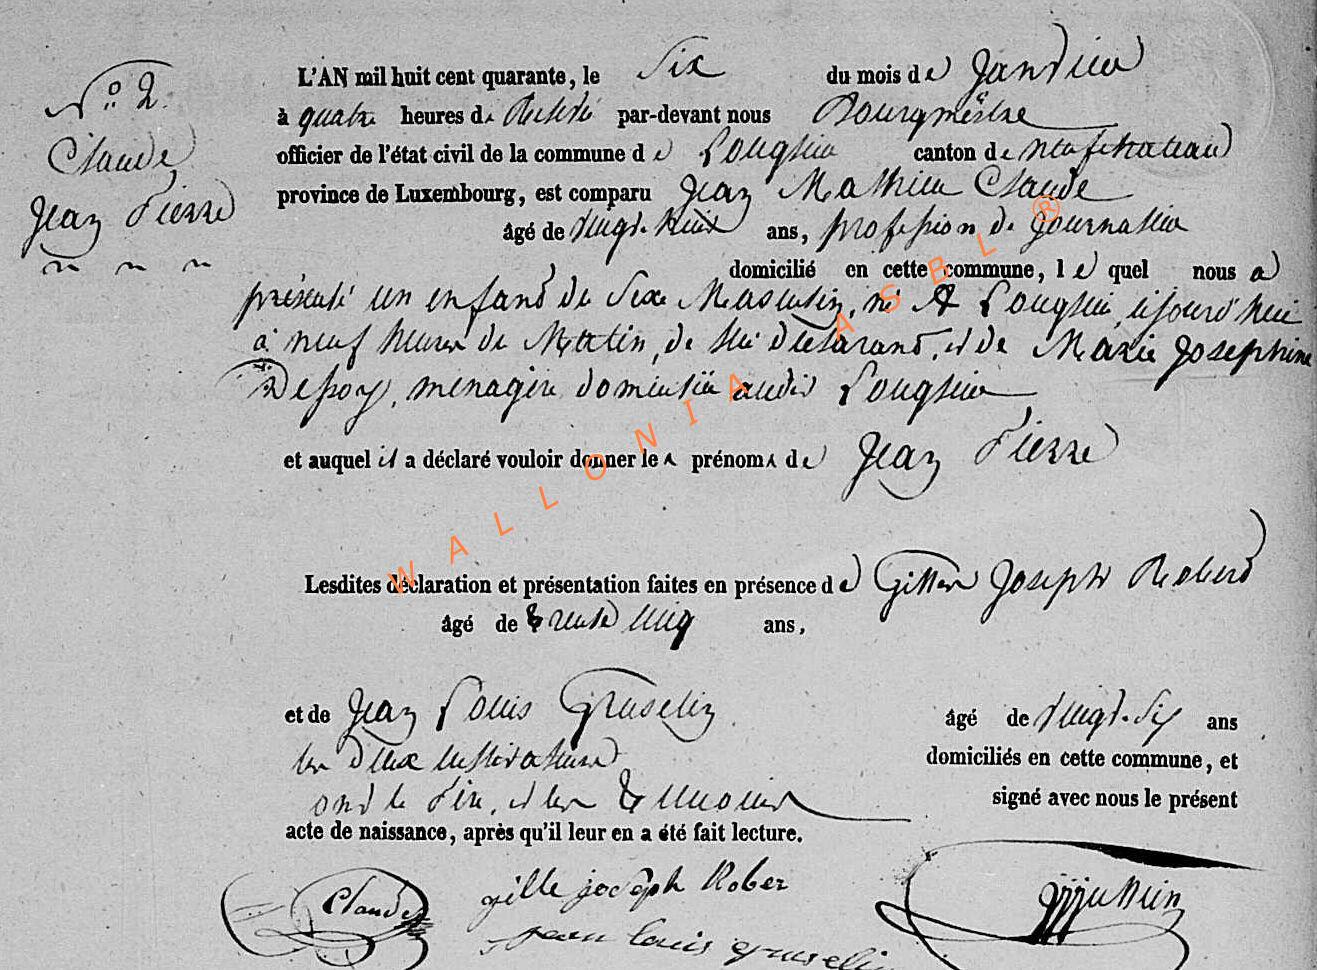 N.º 2.
Claude
Jean Pierre
L'AN mil huit cent quarante, le Six du mois de Janvier
à quatre heures de par-devant nous Bourgmêstre
officier de l'état civil de la commune de Longlier canton de neufchateau
province de Luxembourg, est comparu Jean Mathieu Claude
âgé de vingt-neuf ans, profession de journalier
domicilié en cette commune, le quel nous a
présenté un enfand de sexe Masculin, né A Longlier, cejourd'hui
à neuf heures de Matin, de lui déclarand, et de Marie Josephine
Dessoy, ménagère domiciliée audit Longlier
et auquel il a déclaré vouloir donner les prénoms de Jean Pierre
Lesdites déclaration et présentation faites en présence de Joseph Roberd
âgé de trente cinq ans,
et de Jean Louis Gruselin âgé de vingt-six ans
les deux domiciliés en cette commune, et
ond le Père, et les témoins signé avec nous le présent
acte de naissance, après qu'il leur en a été fait lecture.
Claude gille joseph Rober
jean louis gruselin
WALLONIA ASBL ®